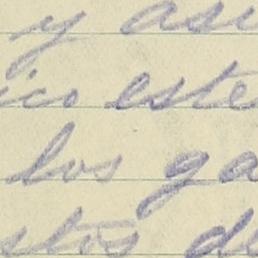 y asi
ico este
los ga
stos de